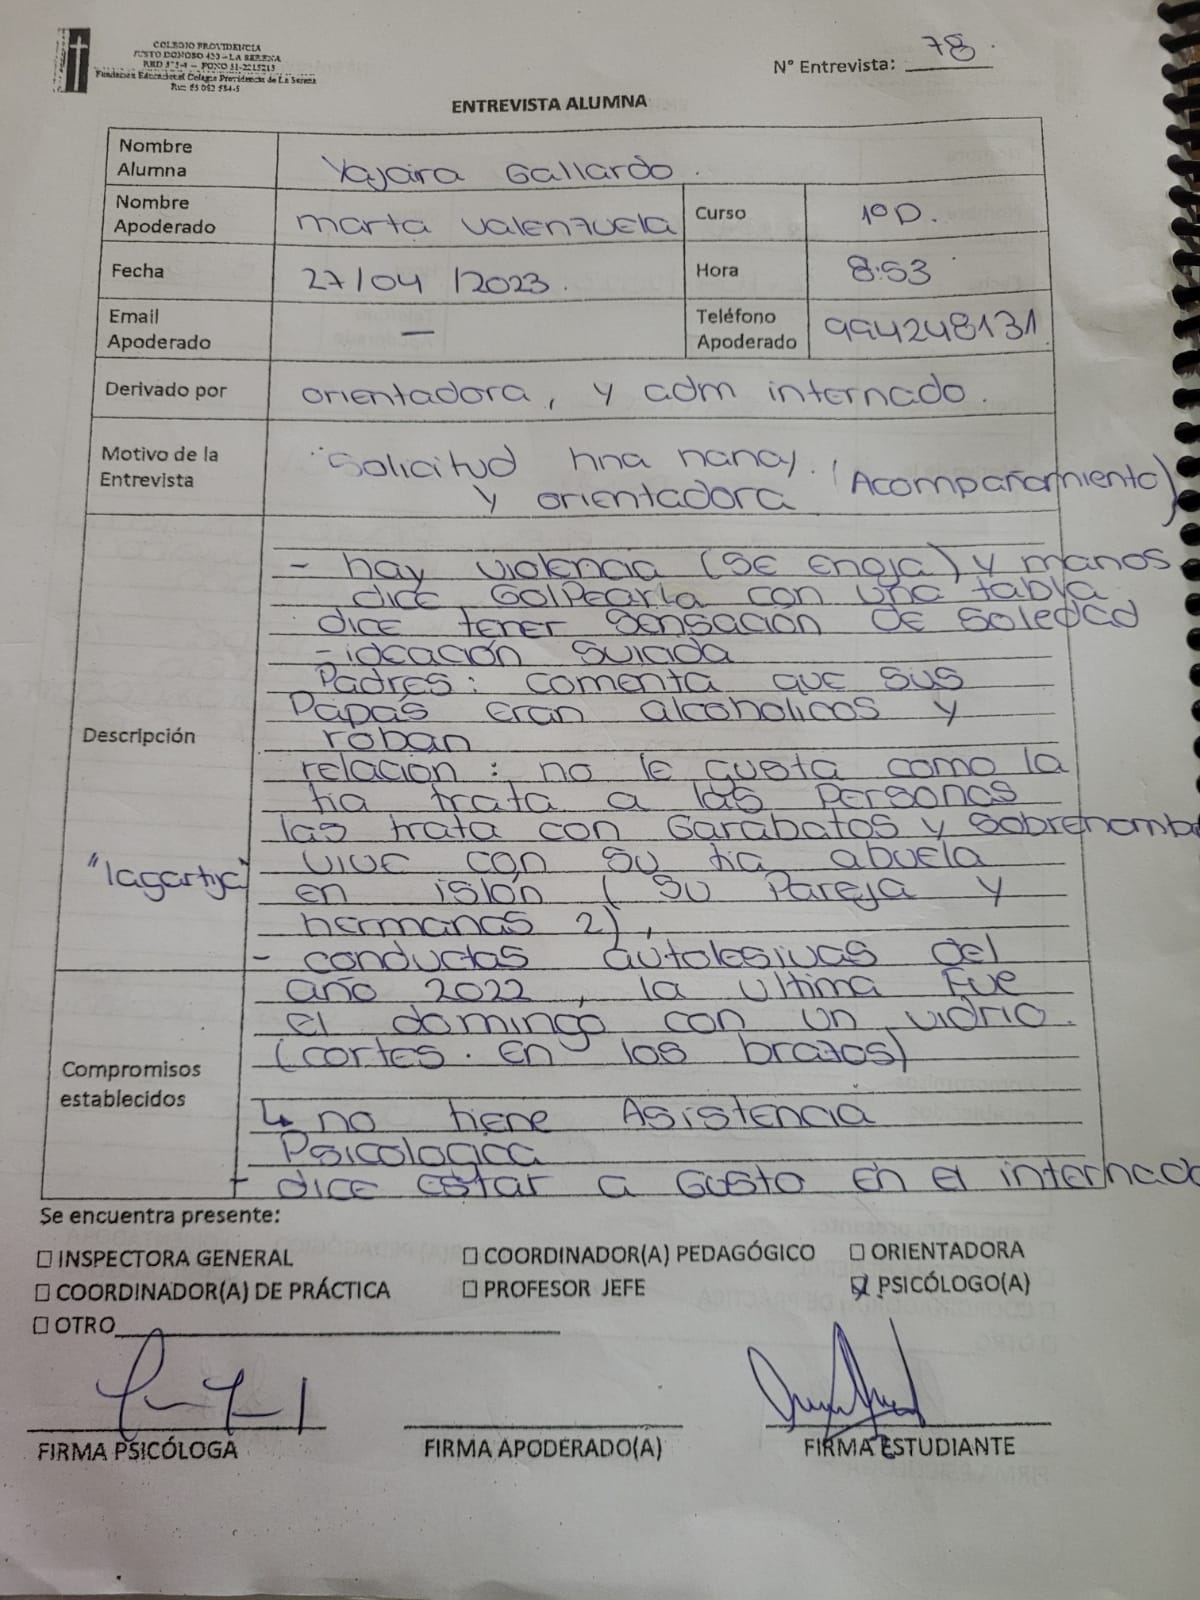 COLEGIO PROVIDENCIA
JUSTO DONOSO 420 - LA SERENA
Fundación Educacional Colegio Providencia de La Serena
N° Entrevista: 78.
ENTREVISTA ALUMNA
Nombre Alumna
Yajaira Gallardo.
Nombre Apoderado
Marta Valenzuela
Curso
1º D.
Fecha
27/04/2023.
Hora
8:53
Email Apoderado
—
Teléfono Apoderado
994248131
Derivado por
orientadora, y adm internado.
Motivo de la Entrevista
Solicitud hna nancy. (Acompañamiento)
y orientadora
Descripción
- hay violencia (se enoja) y manos
dice golpearla con una tabla
dice tener sensación de soledad
- ideación suicida
Padres: comenta que sus
Papás eran alcoholicos y
roban
relación: no le gusta como la
tia trata a las personas
las trata con garabatos y sobrenomb
"lagartija"
vive con su tia abuela
en islón (su pareja y
hermanas 2),
- conductas autolesivas del
año 2022, la ultima fue
el domingo con un vidrio.
(cortes. en los brazos)
Compromisos establecidos
↳ no tiene Asistencia
Psicologica
+ dice estar a gusto en el internado
Se encuentra presente:
☐ INSPECTORA GENERAL ☐ COORDINADOR(A) PEDAGÓGICO ☐ ORIENTADORA
☐ COORDINADOR(A) DE PRÁCTICA ☐ PROFESOR JEFE ☑ PSICÓLOGO(A)
☐ OTRO
FIRMA PSICÓLOGA FIRMA APODERADO(A) FIRMA ESTUDIANTE